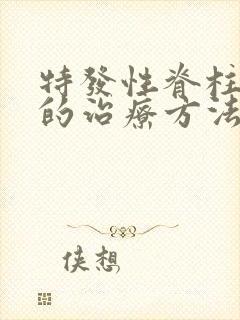 特發性脊柱
的治療方法
俠想